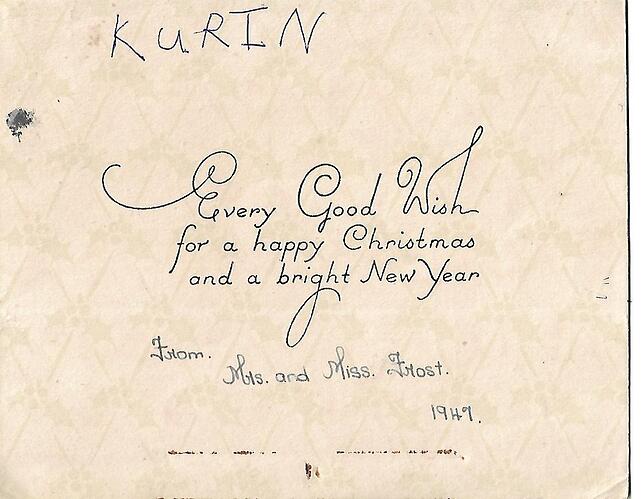 KURIN
Every Good Wish
for a happy Christmas
and a bright New Year
From.
Mrs. and Miss. Frost.
1947.